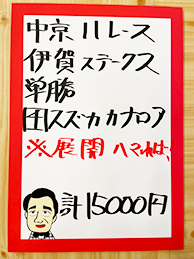 中京11レース
伊賀ステークス
単勝
団スズカカナロア
※展開ハマれば、
計15000円